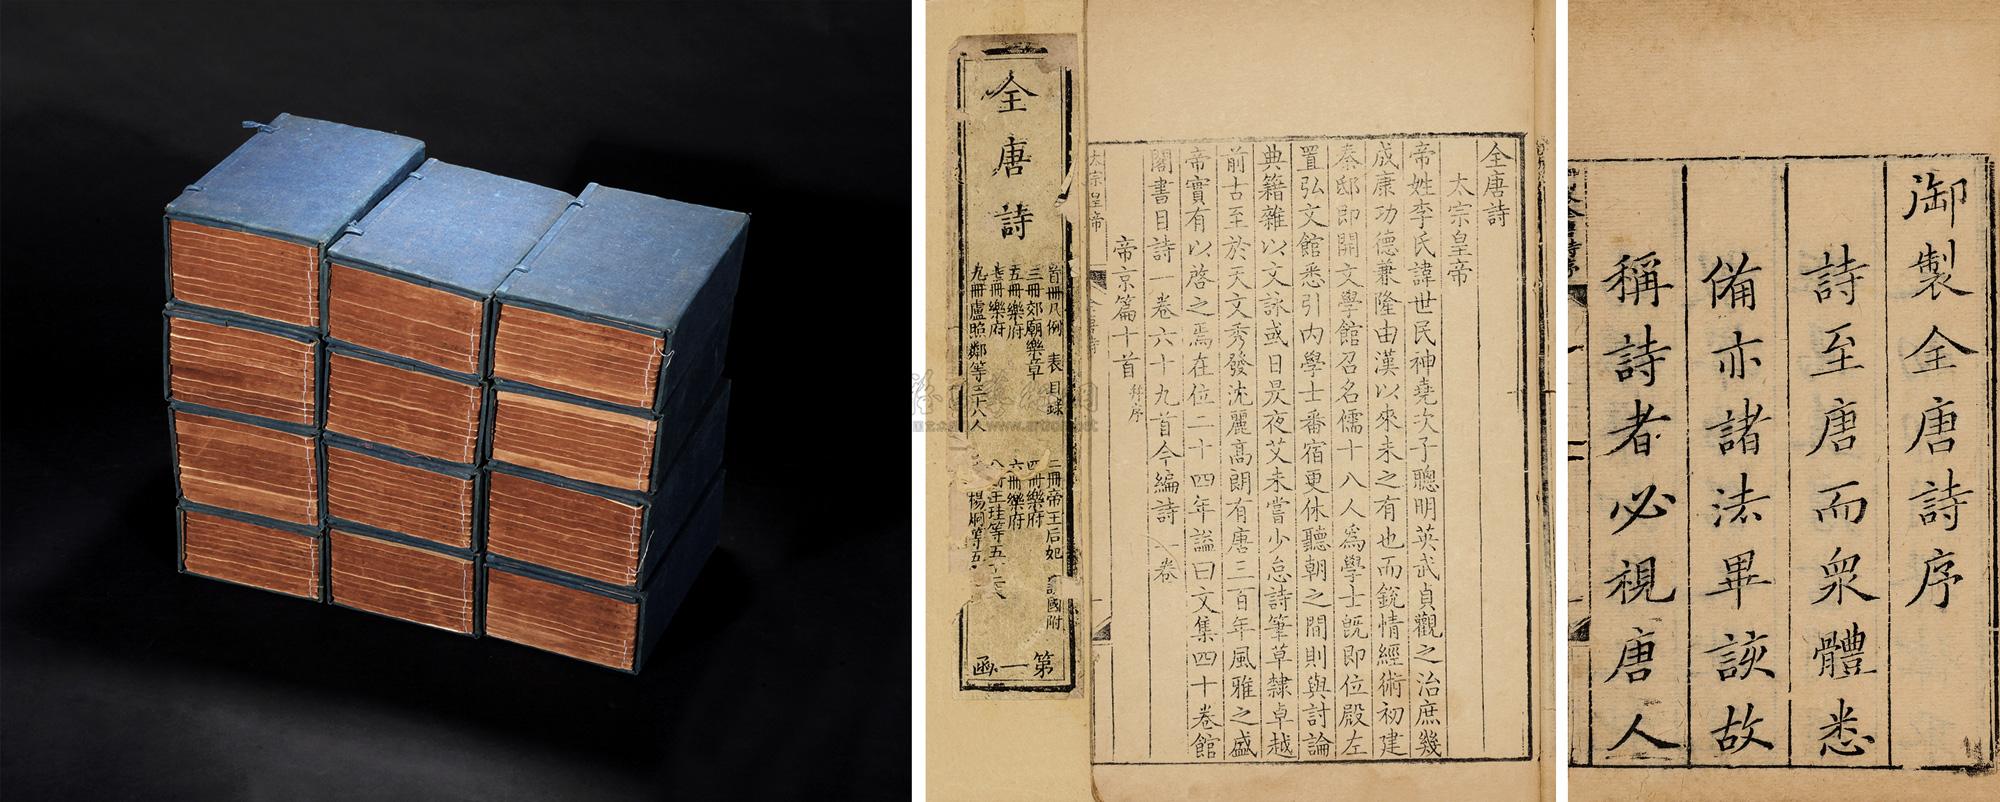 全唐詩
首冊凡例 表 目錄
二冊帝王后妃 國附
三冊郊廟樂章
四冊樂府
五冊樂府
六冊樂府
七冊樂府
王珪等五十
九冊盧照鄰等三十八人
楊炯等五
第一函
全唐詩
太宗皇帝
帝姓李氏諱世民神堯次子聰明英武貞觀之治庶幾
成康功德兼隆由漢以來未之有也而銳情經術初建
秦邸即開文學館召名儒十八人爲學士既即位殿左
置弘文館悉引內學士番宿更休聽朝之間則與討論
典籍雜以文詠或日昃夜艾未嘗少怠詩筆草隸卓越
前古至於天文秀發沈麗高朗有唐三百年風雅之盛
帝實有以啓之焉在位二十四年謚曰文集四十卷館
閣書目詩一卷六十九首今編詩一卷
帝京篇十首 并序
太宗皇帝
全唐詩
御製全唐詩序
詩至唐而衆體悉
備亦諸法畢該故
稱詩者必視唐人
www.artron.net